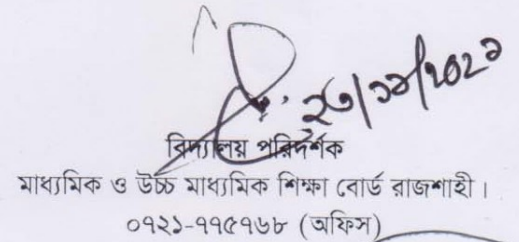 ২৩/১১/২০২১
বিদ্যালয় পরিদর্শক
মাধ্যমিক ও উচ্চ মাধ্যমিক শিক্ষা বোর্ড রাজশাহী।
০৭২১-৭৭৫৭৬৮ (অফিস)